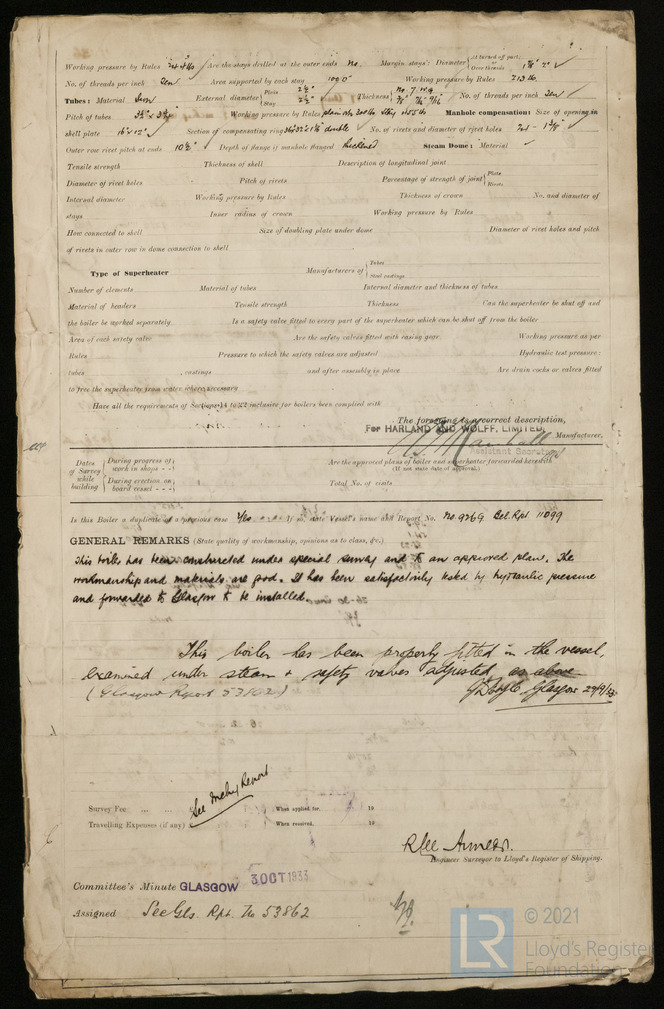 Working pressure by Rules Are the stays drilled at the outer ends No. Margin stays: Diameter { At turned off part, or Over threads 1 7/8" 2" ✓
No. of threads per inch Ten Area supported by each stay Working pressure by Rules 213 lb.
Tubes: Material Iron External diameter { Plain 2 1/2" Stay 2 1/2" Thickness { No. of threads per inch Ten ✓
Pitch of tubes Working pressure by Rules Manhole compensation: Size of opening in
shell plate 16" x 12" ✓ Section of compensating ring double No. of rivets and diameter of rivet holes
Outer row rivet pitch at ends 10 1/2" ✓ Depth of flange if manhole flanged Steam Dome: Material ✓
Tensile strength Thickness of shell Description of longitudinal joint
Diameter of rivet holes Pitch of rivets Percentage of strength of joint { Plate Rivets
Internal diameter Working pressure by Rules Thickness of crown No. and diameter of
stays Inner radius of crown Working pressure by Rules
How connected to shell Size of doubling plate under dome Diameter of rivet holes and pitch
of rivets in outer row in dome connection to shell
Type of Superheater Manufacturers of { Tubes Steel castings
Number of elements Material of tubes Internal diameter and thickness of tubes
Material of headers Tensile strength Thickness Can the superheater be shut off and
the boiler be worked separately Is a safety valve fitted to every part of the superheater which can be shut off from the boiler
Area of each safety valve Are the safety valves fitted with easing gear Working pressure as per
Rules Pressure to which the safety valves are adjusted Hydraulic test pressure:
tubes , castings and after assembly in place Are drain cocks or valves fitted
to free the superheater from water where necessary
Have all the requirements of Sections 14 to 22 inclusive for boilers been complied with
The foregoing is a correct description,
For HARLAND AND WOLFF, LIMITED,
Manufacturer.
Assistant Secretary
Dates of Survey while building { During progress of work in shops - - } Are the approved plans of boiler and superheater forwarded herewith
(If not state date of approval.)
{ During erection on board vessel - - - } Total No. of visits
Is this Boiler a duplicate of a previous case Yes If so, state Vessel's name and Report No. No. 9269 Bel. Rpt 11099
GENERAL REMARKS (State quality of workmanship, opinions as to class, &c.)
This boiler has been constructed under special survey and to an approved plan. The
workmanship and materials are good. It has been satisfactorily tested by hydraulic pressure
and forwarded to Glasgow to be installed.
This boiler has been properly fitted in the vessel,
examined under steam & safety valves adjusted as above
(Glasgow Report 53862) Glasgow 29/9/33
See Mchy Report
Survey Fee ... ... £ : : When applied for, 19
Travelling Expenses (if any) £ : : When received, 19
Engineer Surveyor to Lloyd's Register of Shipping.
Committee's Minute GLASGOW 3 OCT 1933
Assigned See Gls. Rpt. No 53862
LR © 2021
Lloyd's Register
Foundation